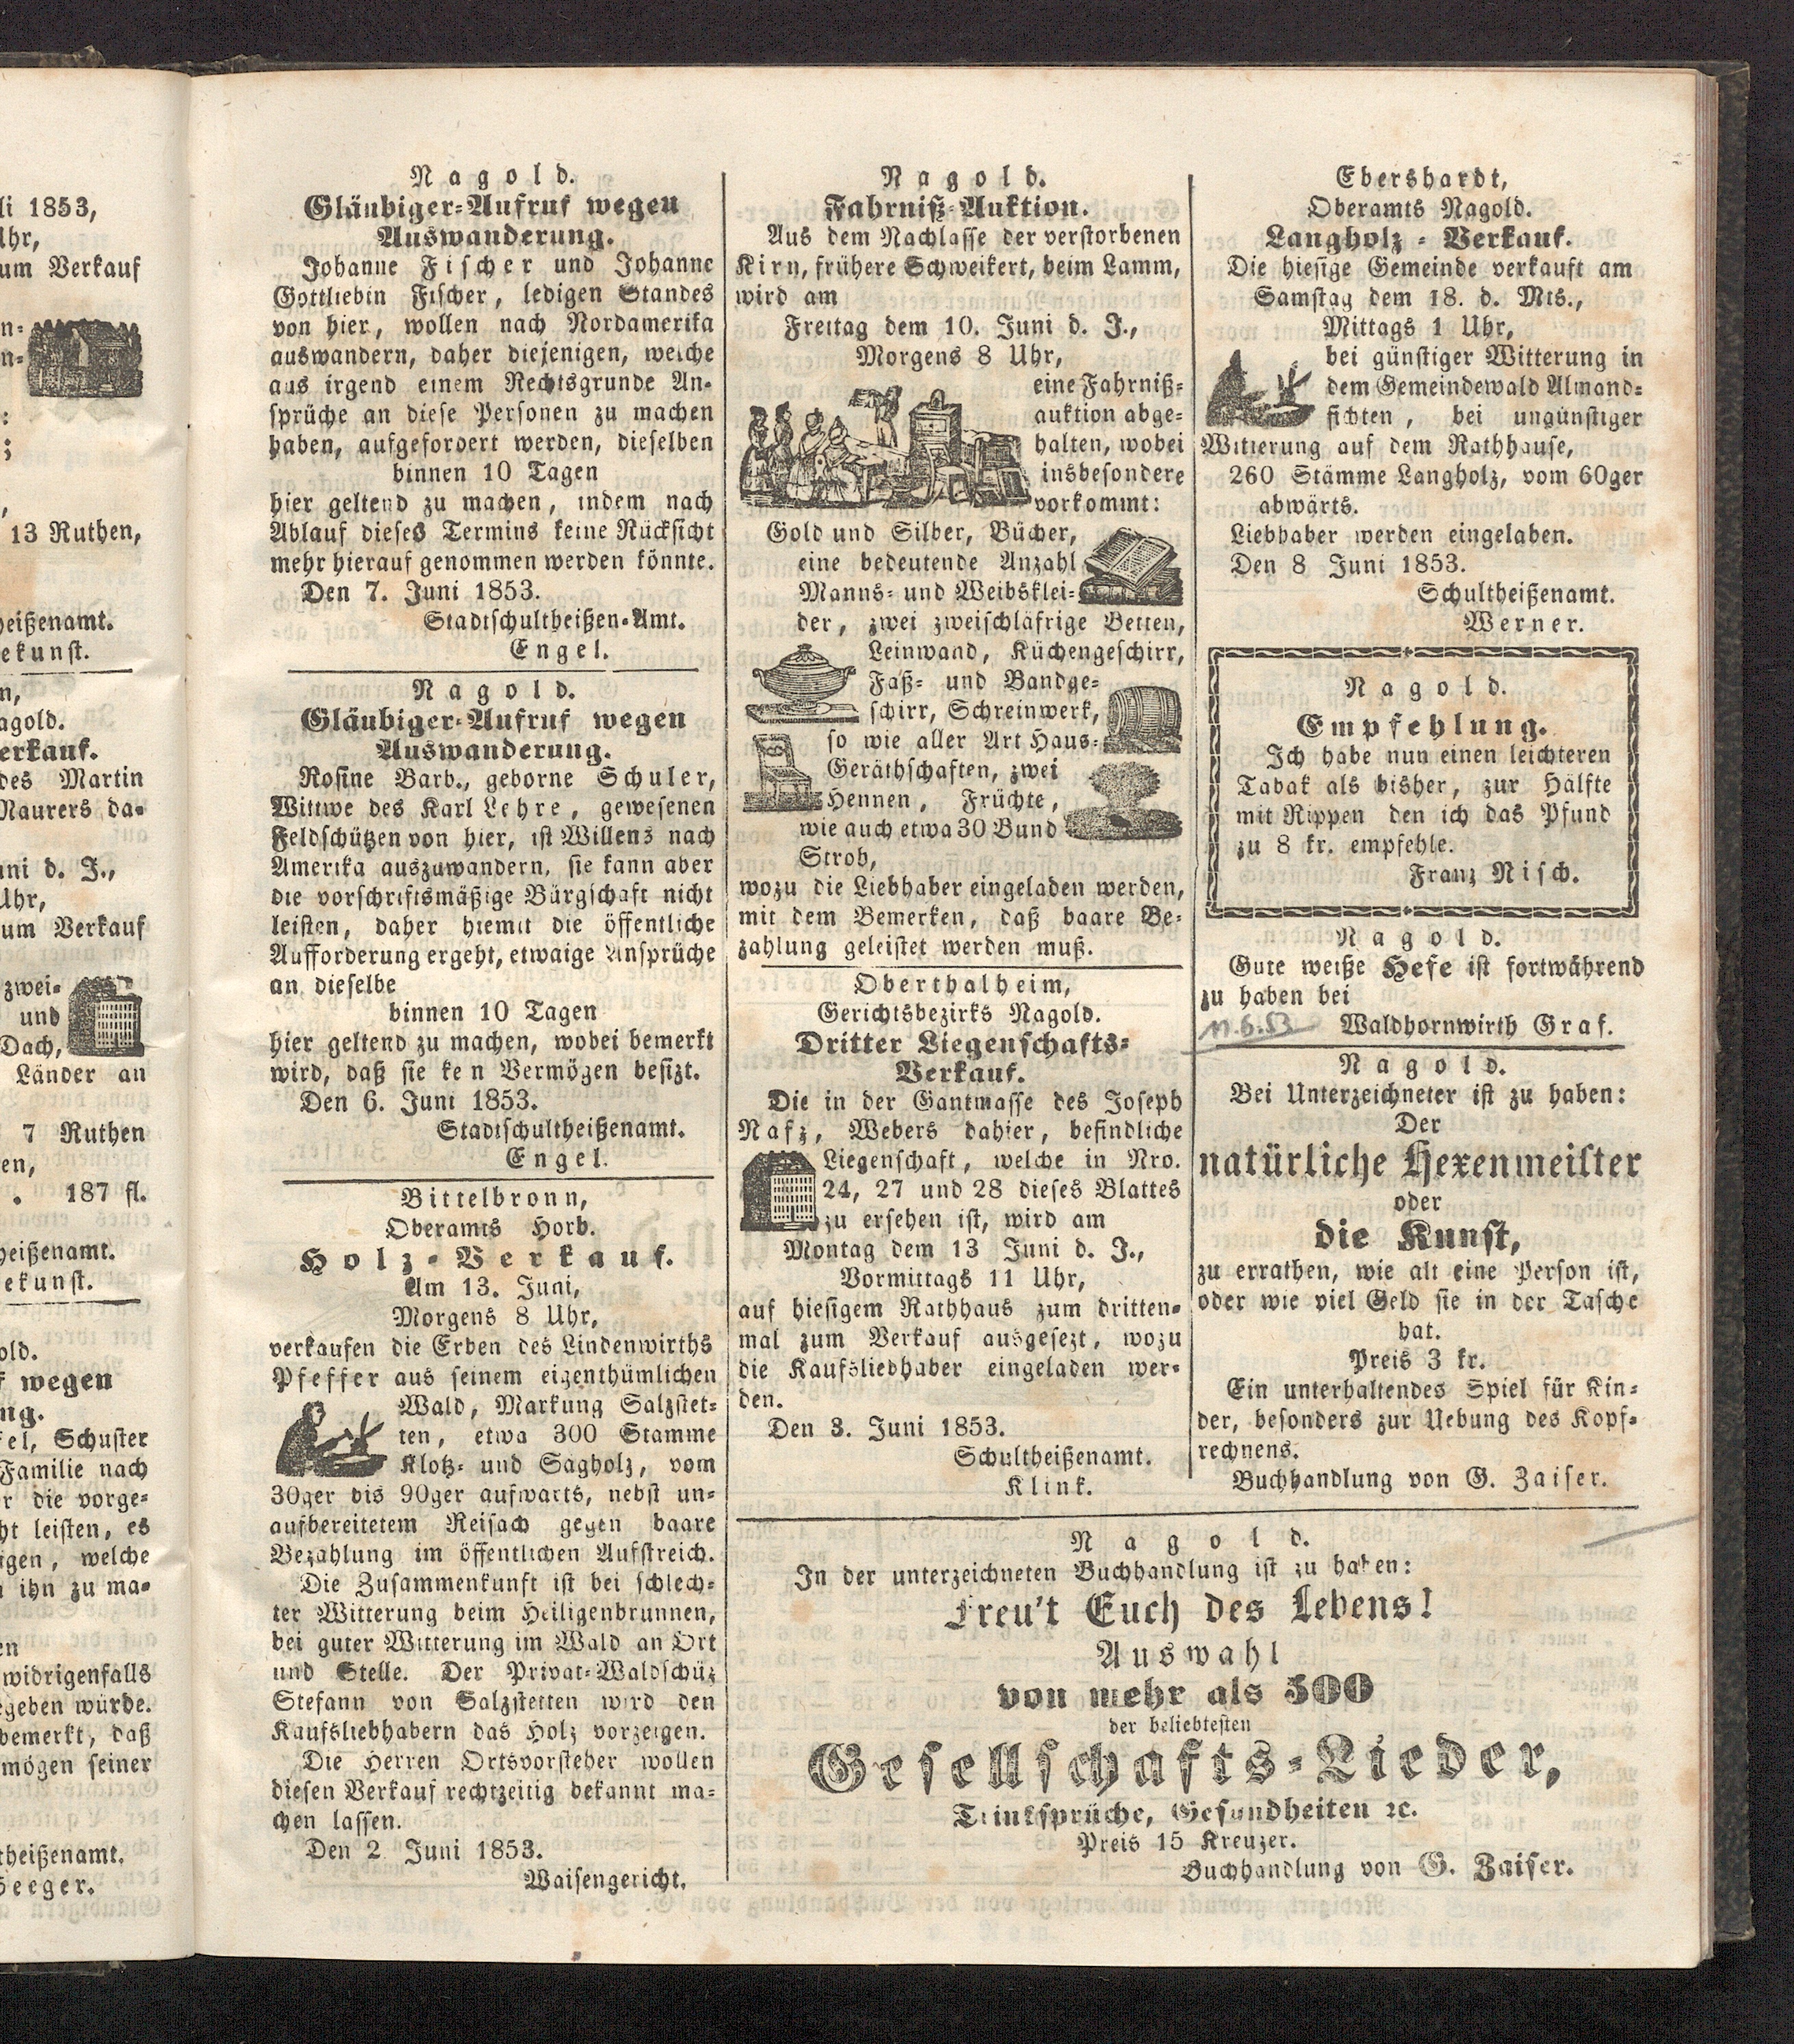 li 1853,
Uhr,
um Verkauf
n-
n-
:
;
,
13 Ruthen,
heißenamt.
ekunst.
n,
agold.
erkauf.
des Martin
Maurers da-
uni d. J.,
Uhr,
um Verkauf
zwei-
und
Dach,
Länder an
7 Ruthen
en,
. 187 fl.
heißenamt.
ekunst.
old.
f wegen
ng.
fel, Schuster
Familie nach
r die vorge-
ht leisten, es
igen, welche
n ihn zu ma-
en
widrigenfalls
egeben würde.
bemerkt, daß
mögen seiner
theißenamt.
Seeger.
Nagold.
Gläubiger-Aufruf wegen
Auswanderung.
Johanne Fischer und Johanne
Gottliebin Fischer, ledigen Standes
von hier, wollen nach Nordamerika
auswandern, daher diejenigen, welche
aus irgend einem Rechtsgrunde An-
sprüche an diese Personen zu machen
haben, aufgefordert werden, dieselben
binnen 10 Tagen
hier geltend zu machen, indem nach
Ablauf dieses Termins keine Rücksicht
mehr hierauf genommen werden könnte.
Den 7. Juni 1853.
Stadtschultheißen-Amt.
Engel.
Nagold.
Gläubiger-Aufruf wegen
Auswanderung.
Rosine Barb., geborne Schuler,
Wittwe des Karl Lehre, gewesenen
Feldschützen von hier, ist Willens nach
Amerika auszuwandern, sie kann aber
die vorschriftsmäßige Bürgschaft nicht
leisten, daher hiemit die öffentliche
Aufforderung ergeht, etwaige Ansprüche
an dieselbe
binnen 10 Tagen
hier geltend zu machen, wobei bemerkt
wird, daß sie ke n Vermögen besizt.
Den 6. Juni 1853.
Stadtschultheißenamt.
Engel.
Bittelbronn,
Oberamts Horb.
Holz-Verkauf.
Am 13. Juni,
Morgens 8 Uhr,
verkaufen die Erben des Lindenwirths
Pfeffer aus seinem eigenthümlichen
Wald, Markung Salzstet-
ten, etwa 300 Stamme
Klotz- und Sagholz, vom
30ger bis 90ger aufwarts, nebst un-
aufbereitetem Reisach gegen baare
Bezahlung im öffentlichen Aufstreich.
Die Zusammenkunft ist bei schlech-
ter Witterung beim Heiligenbrunnen,
bei guter Witterung im Wald an Ort
und Stelle. Der Privat-Waldschüz
Stefann von Salzstetten wird den
Kaufsliebhabern das Holz vorzeigen.
Die Herren Ortsvorsteher wollen
diesen Verkauf rechtzeitig bekannt ma-
chen lassen.
Den 2 Juni 1853.
Waisengericht.
Nagold.
Fahrniß-Auktion.
Aus dem Nachlasse der verstorbenen
Kirn, frühere Schweikert, beim Lamm,
wird am
Freitag dem 10. Juni d. J.,
Morgens 8 Uhr,
eine Fahrniß-
auktion abge-
halten, wobei
insbesondere
vorkommt:
Gold und Silber, Bücher,
eine bedeutende Anzahl
Manns- und Weibsklei-
der, zwei zweischläfrige Betten,
Leinwand, Küchengeschirr,
Faß- und Bandge-
schirr, Schreinwerk,
so wie aller Art Haus-
Geräthschaften, zwei
Hennen, Früchte,
wie auch etwa 30 Bund
Stroh,
wozu die Liebhaber eingeladen werden,
mit dem Bemerken, daß baare Be-
zahlung geleistet werden muß.
Oberthalheim,
Gerichtsbezirks Nagold.
Dritter Liegenschafts-
Verkauf.
Die in der Gantmasse des Joseph
Nafz, Webers dahier, befindliche
Liegenschaft, welche in Nro.
24, 27 und 28 dieses Blattes
zu ersehen ist, wird am
Montag dem 13 Juni d. J.,
Vormittags 11 Uhr,
auf hiesigem Rathhaus zum dritten-
mal zum Verkauf ausgesezt, wozu
die Kaufsliebhaber eingeladen wer-
den.
Den 3. Juni 1853.
Schultheißenamt.
Klink.
Ebershardt,
Oberamts Nagold.
Langholz-Verkauf.
Die hiesige Gemeinde verkauft am
Samstag dem 18. d. Mts.,
Mittags 1 Uhr,
bei günstiger Witterung in
dem Gemeindewald Almand-
fichten, bei ungünstiger
Witterung auf dem Rathhause,
260 Stämme Langholz, vom 60ger
abwärts.
Liebhaber werden eingeladen.
Den 8 Juni 1853.
Schultheißenamt.
Werner.
Nagold.
Empfehlung.
Ich habe nun einen leichteren
Tabak als bisher, zur Hälfte
mit Rippen den ich das Pfund
zu 8 kr. empfehle.
Franz Nisch.
Nagold.
Gute weiße Hefe ist fortwährend
zu haben bei
Waldhornwirth Graf.
Nagold.
Bei Unterzeichneter ist zu haben:
Der
natürliche Hexenmeister
oder
die Kunst,
zu errathen, wie alt eine Person ist,
oder wie viel Geld sie in der Tasche
hat.
Preis 3 kr.
Ein unterhaltendes Spiel für Kin-
der, besonders zur Uebung des Kopf-
rechnens.
Buchhandlung von G. Zaiser.
Nagold.
In der unterzeichneten Buchhandlung ist zu haben:
Freu't Euch des Lebens!
Auswahl
von mehr als 500
der beliebtesten
Gesellschafts-Lieder,
Trinksprüche, Gesundheiten ꝛc.
Preis 15 Kreuzer.
Buchhandlung von G. Zaiser.